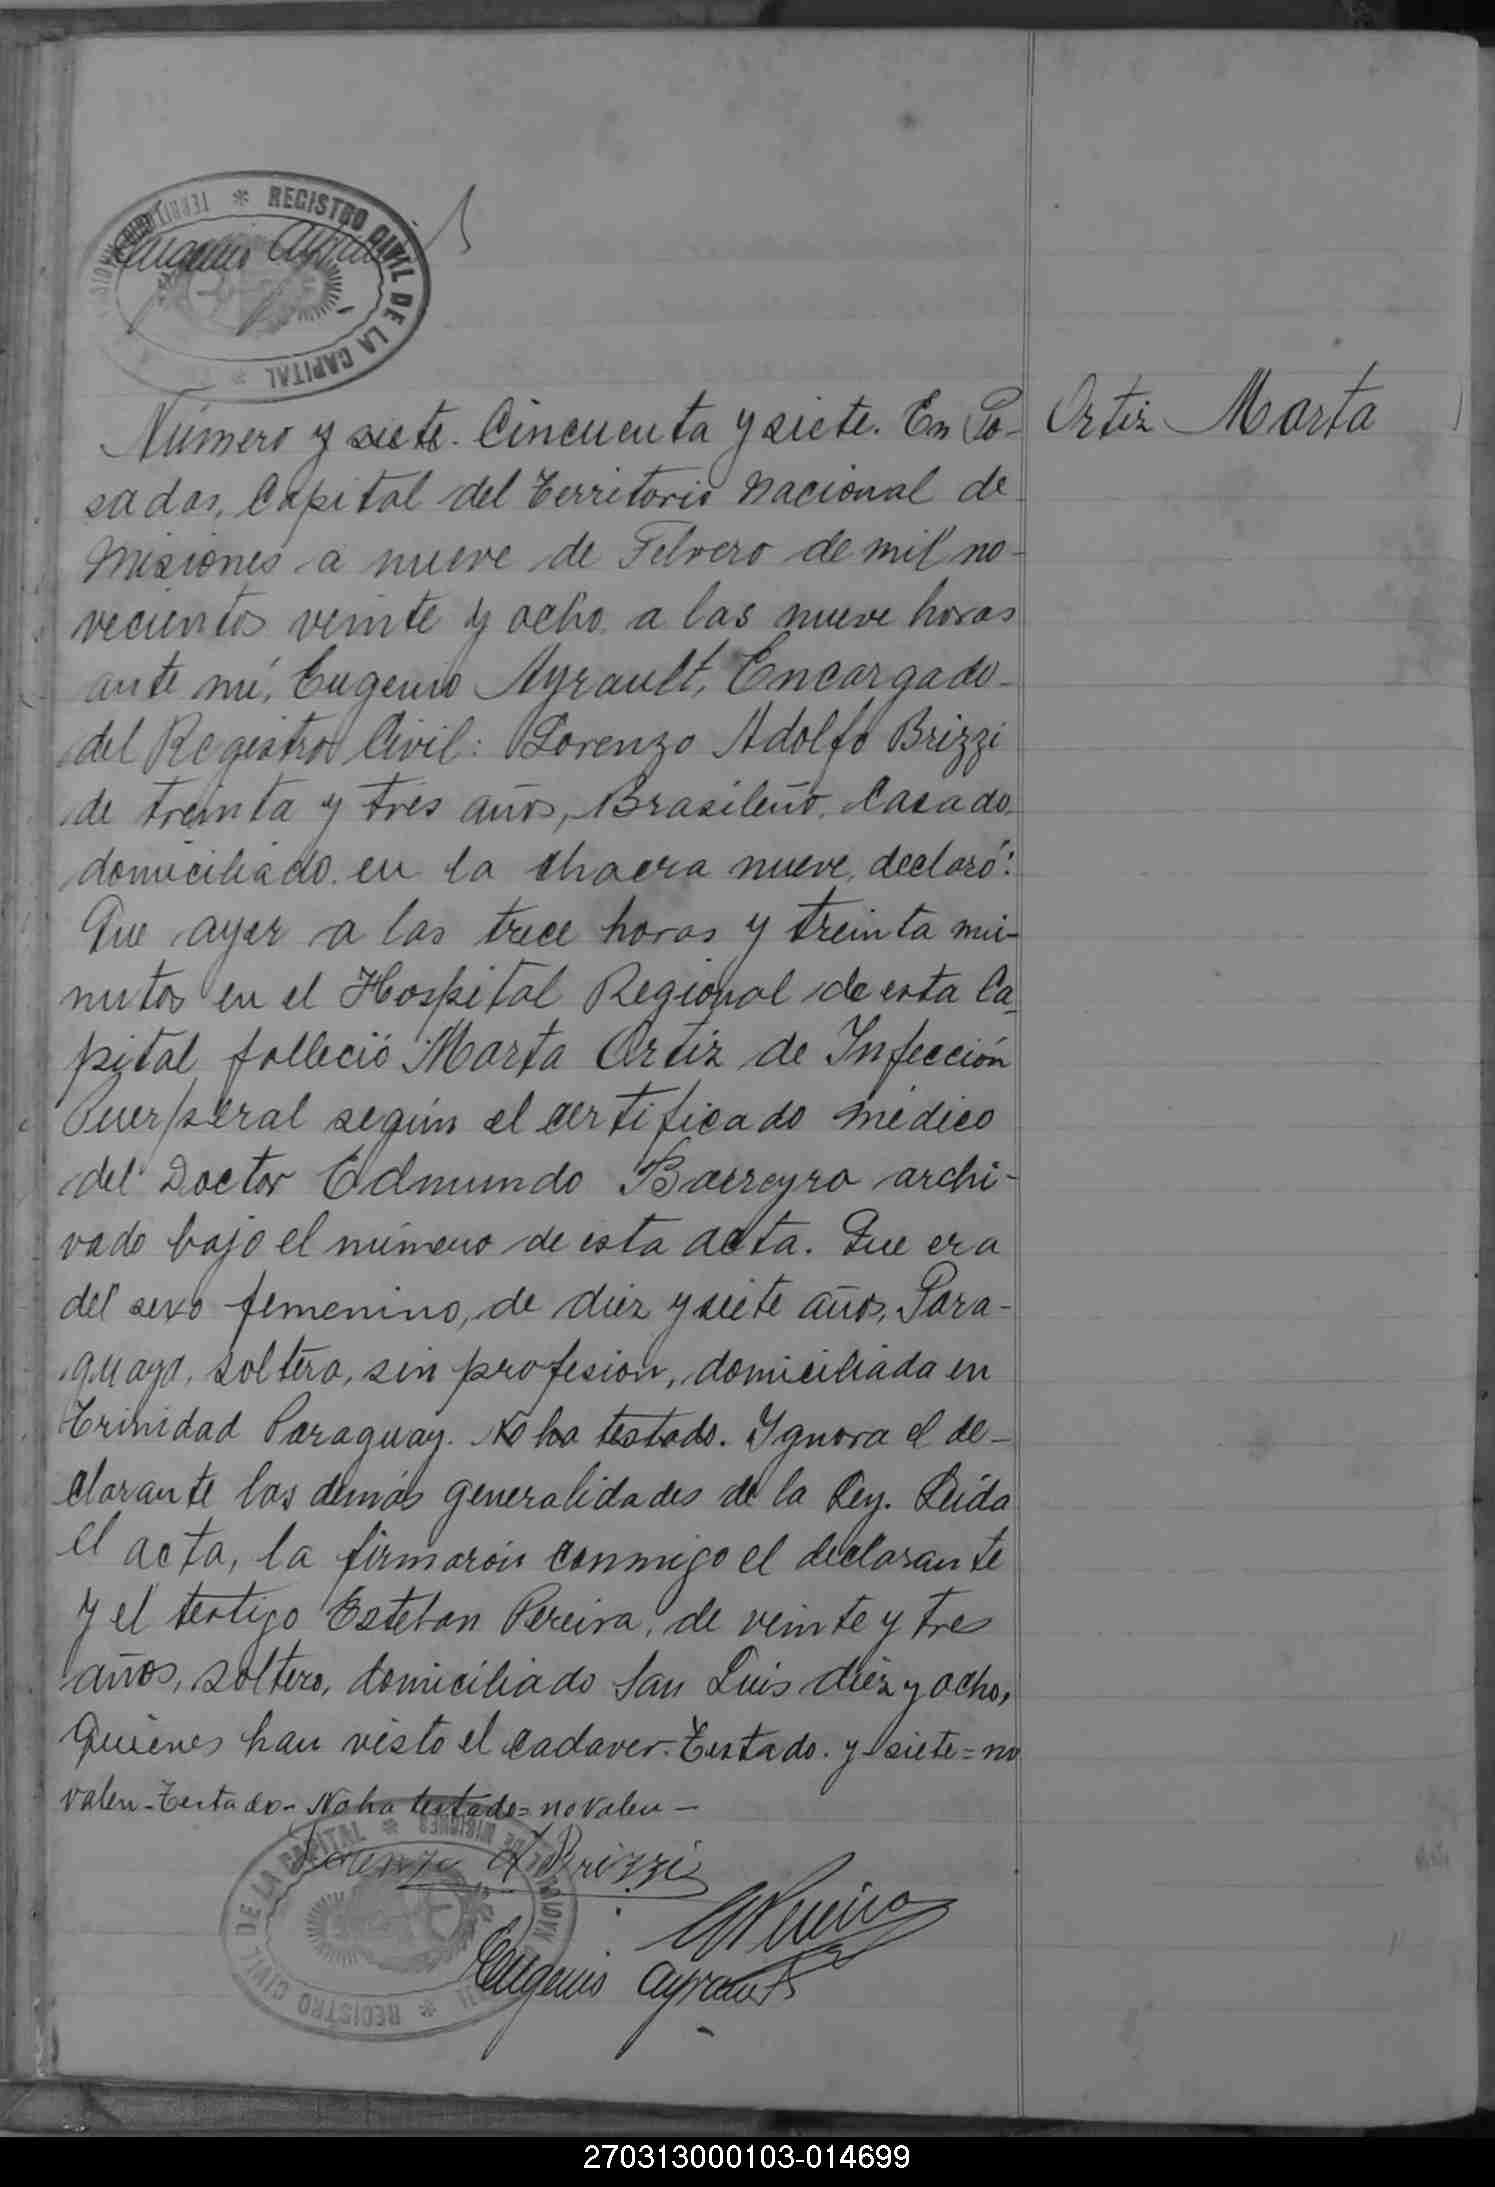 REGISTRO CIVIL DE LA CAPITAL
Eugenio Ayrault
Ortiz Marta
Número y siete. Cincuenta y siete. En Po-
sadas, Capital del Territorio Nacional de
Misiones a nueve de Febrero de mil no-
vecientos veinte y ocho a las nueve horas
ante mí, Eugenio Ayrault, Encargado
del Registro Civil: Lorenzo Adolfo Brizzi
de treinta y tres años, Brasileño, Casado,
domiciliado en la chacra nueve, declaró:
Que ayer a las trece horas y treinta mi-
nutos en el Hospital Regional de esta Ca-
pital falleció Marta Ortiz de Infección
Puerperal según el certificado médico
del Doctor Edmundo Barreyro archi-
vado bajo el número de esta acta. Que era
del sexo femenino, de diez y siete años, Para-
guaya, soltera, sin profesion, domiciliada en
Trinidad Paraguay. No ha testado. Ignora el de-
clarante las demás generalidades de la Ley. Leída
el acta, la firmaron conmigo el declarante
y el testigo Esteban Pereira, de veinte y tres
años, soltero, domiciliado San Luis diez y ocho,
quienes han visto el cadaver. Testado. y siete = no
valen - Testado - No ha testado = no valen -
Lorenzo A Brizzi
EPereira
Eugenio Ayrault
REGISTRO CIVIL DE LA CAPITAL
270313000103-014699